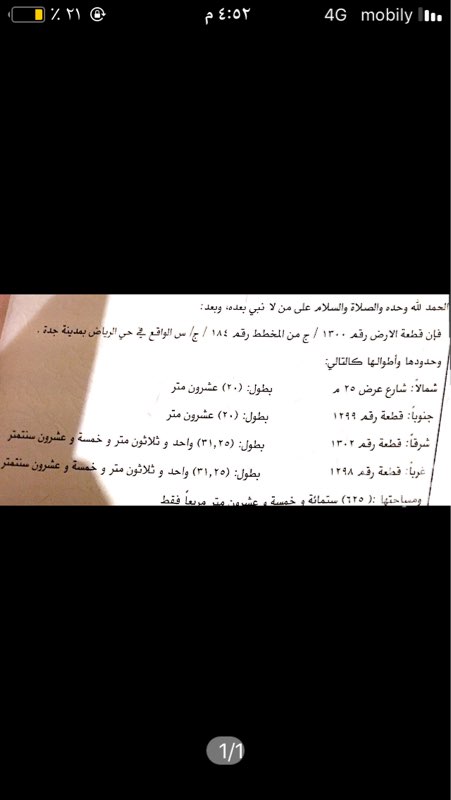 ٪ ٢١ ٤:٥٢ م 4G mobily
الحمد لله وحده والصلاة والسلام على من لا نبي بعده، وبعد:
فإن قطعة الارض رقم ١٣٠٠ / ج من المخطط رقم ١٨٤ / ج/ س الواقع في حي الرياض بمدينة جدة .
وحدودها وأطوالها كالتالي:
شمالاً: شارع عرض ٢٥ م بطول: (٢٠) عشرون متر
جنوباً: قطعة رقم ١٢٩٩ بطول: (٢٠) عشرون متر
شرقاً: قطعة رقم ١٣٠٢ بطول: (٣١,٢٥) واحد و ثلاثون متر و خمسة و عشرون سنتمتر
غرباً: قطعة رقم ١٢٩٨ بطول: (٣١,٢٥) واحد و ثلاثون متر و خمسة و عشرون سنتمتر
ومساحتها :( ٦٢٥) ستمائة و خمسة و عشرون متر مربعاً فقط
1/1